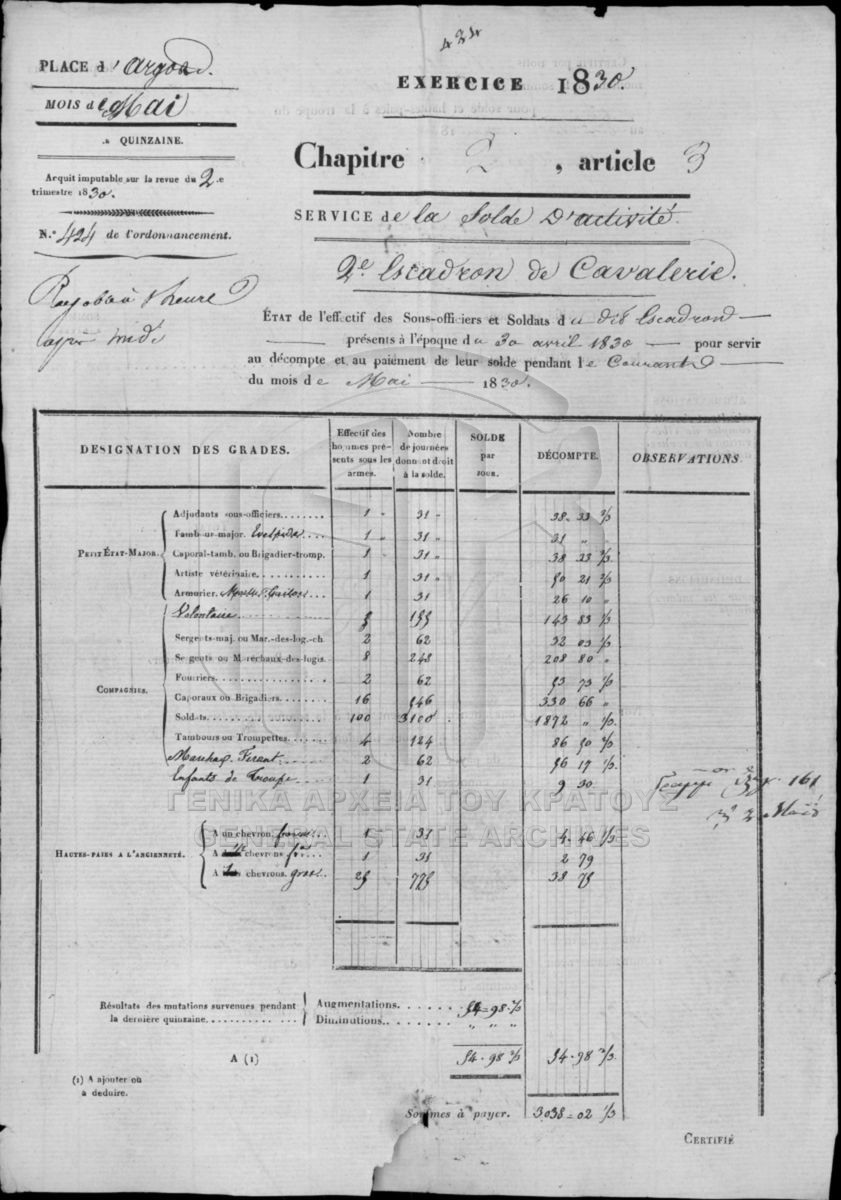 424
PLACE d'Argos.
MOIS de Mai
e QUINZAINE.
Acquit imputable sur la revue du 2e
trimestre 1830.
N.° 424 de l'ordonnancement.
à heure
après midi
EXERCICE 1830.
Chapitre 2, article 3
SERVICE de la Solde D'activité.
2e Escadron de Cavalerie.
ÉTAT de l'effectif des Sous-officiers et Soldats du dit Escadron
présents à l'époque du 30 avril 1830 pour servir
au décompte et au paiement de leur solde pendant le Courant
du mois de Mai 1830.
DESIGNATION DES GRADES. Effectif des hommes présents sous les armes. Nombre de journées donnant droit à la solde. SOLDE par JOUR. DÉCOMPTE. OBSERVATIONS
PETIT ÉTAT-MAJOR.
Adjudants sous-officiers 1 " 31 " 38 33 2/3
Tamb-ur-major. 1 " 31 " 31 " "
Caporal-tamb. ou Brigadier-tromp. 1 " 31 " 38 33 2/3
Artiste vétérinaire. 1 31 " 50 21 2/3
Armurier. 1 31 26 10 "
COMPAGNIES.
Volontaire 5 155 143 83 1/3
Sergents-maj. ou Mar.-des-log.-ch. 2 62 52 03 1/3
Sergents ou Maréchaux-des-logis 8 248 208 80 "
Fourriers. 2 62 53 73 1/3
Caporaux ou Brigadiers. 16 546 330 66 "
Soldats. 100 3100 1872 " 1/3
Tambours ou Trompettes. 4 124 86 50 2/3
Marchaux Ferant 2 62 56 17 1/3
Enfants de Troupe 1 31 9 30
161
2 Mais
ΓΕΝΙΚΑ ΑΡΧΕΙΑ ΤΟΥ ΚΡΑΤΟΥΣ
GENERAL STATE ARCHIVES
HAUTES-PAIES A L'ANCIENNETÉ.
A un chevron. 1 31 4 46 1/3
A chevrons 1 31 2 79
A chevrons. grec 25 775 38 75
Résultats des mutations survenues pendant
la dernière quinzaine.
Augmentations. 54 = 98 2/3
Diminutions. " " "
A (1) 54 - 98 2/3 54 - 98 2/3
(1) A ajouter ou
à deduire.
Sommes à payer. 3.038 = 02 1/3
CERTIFIÉ